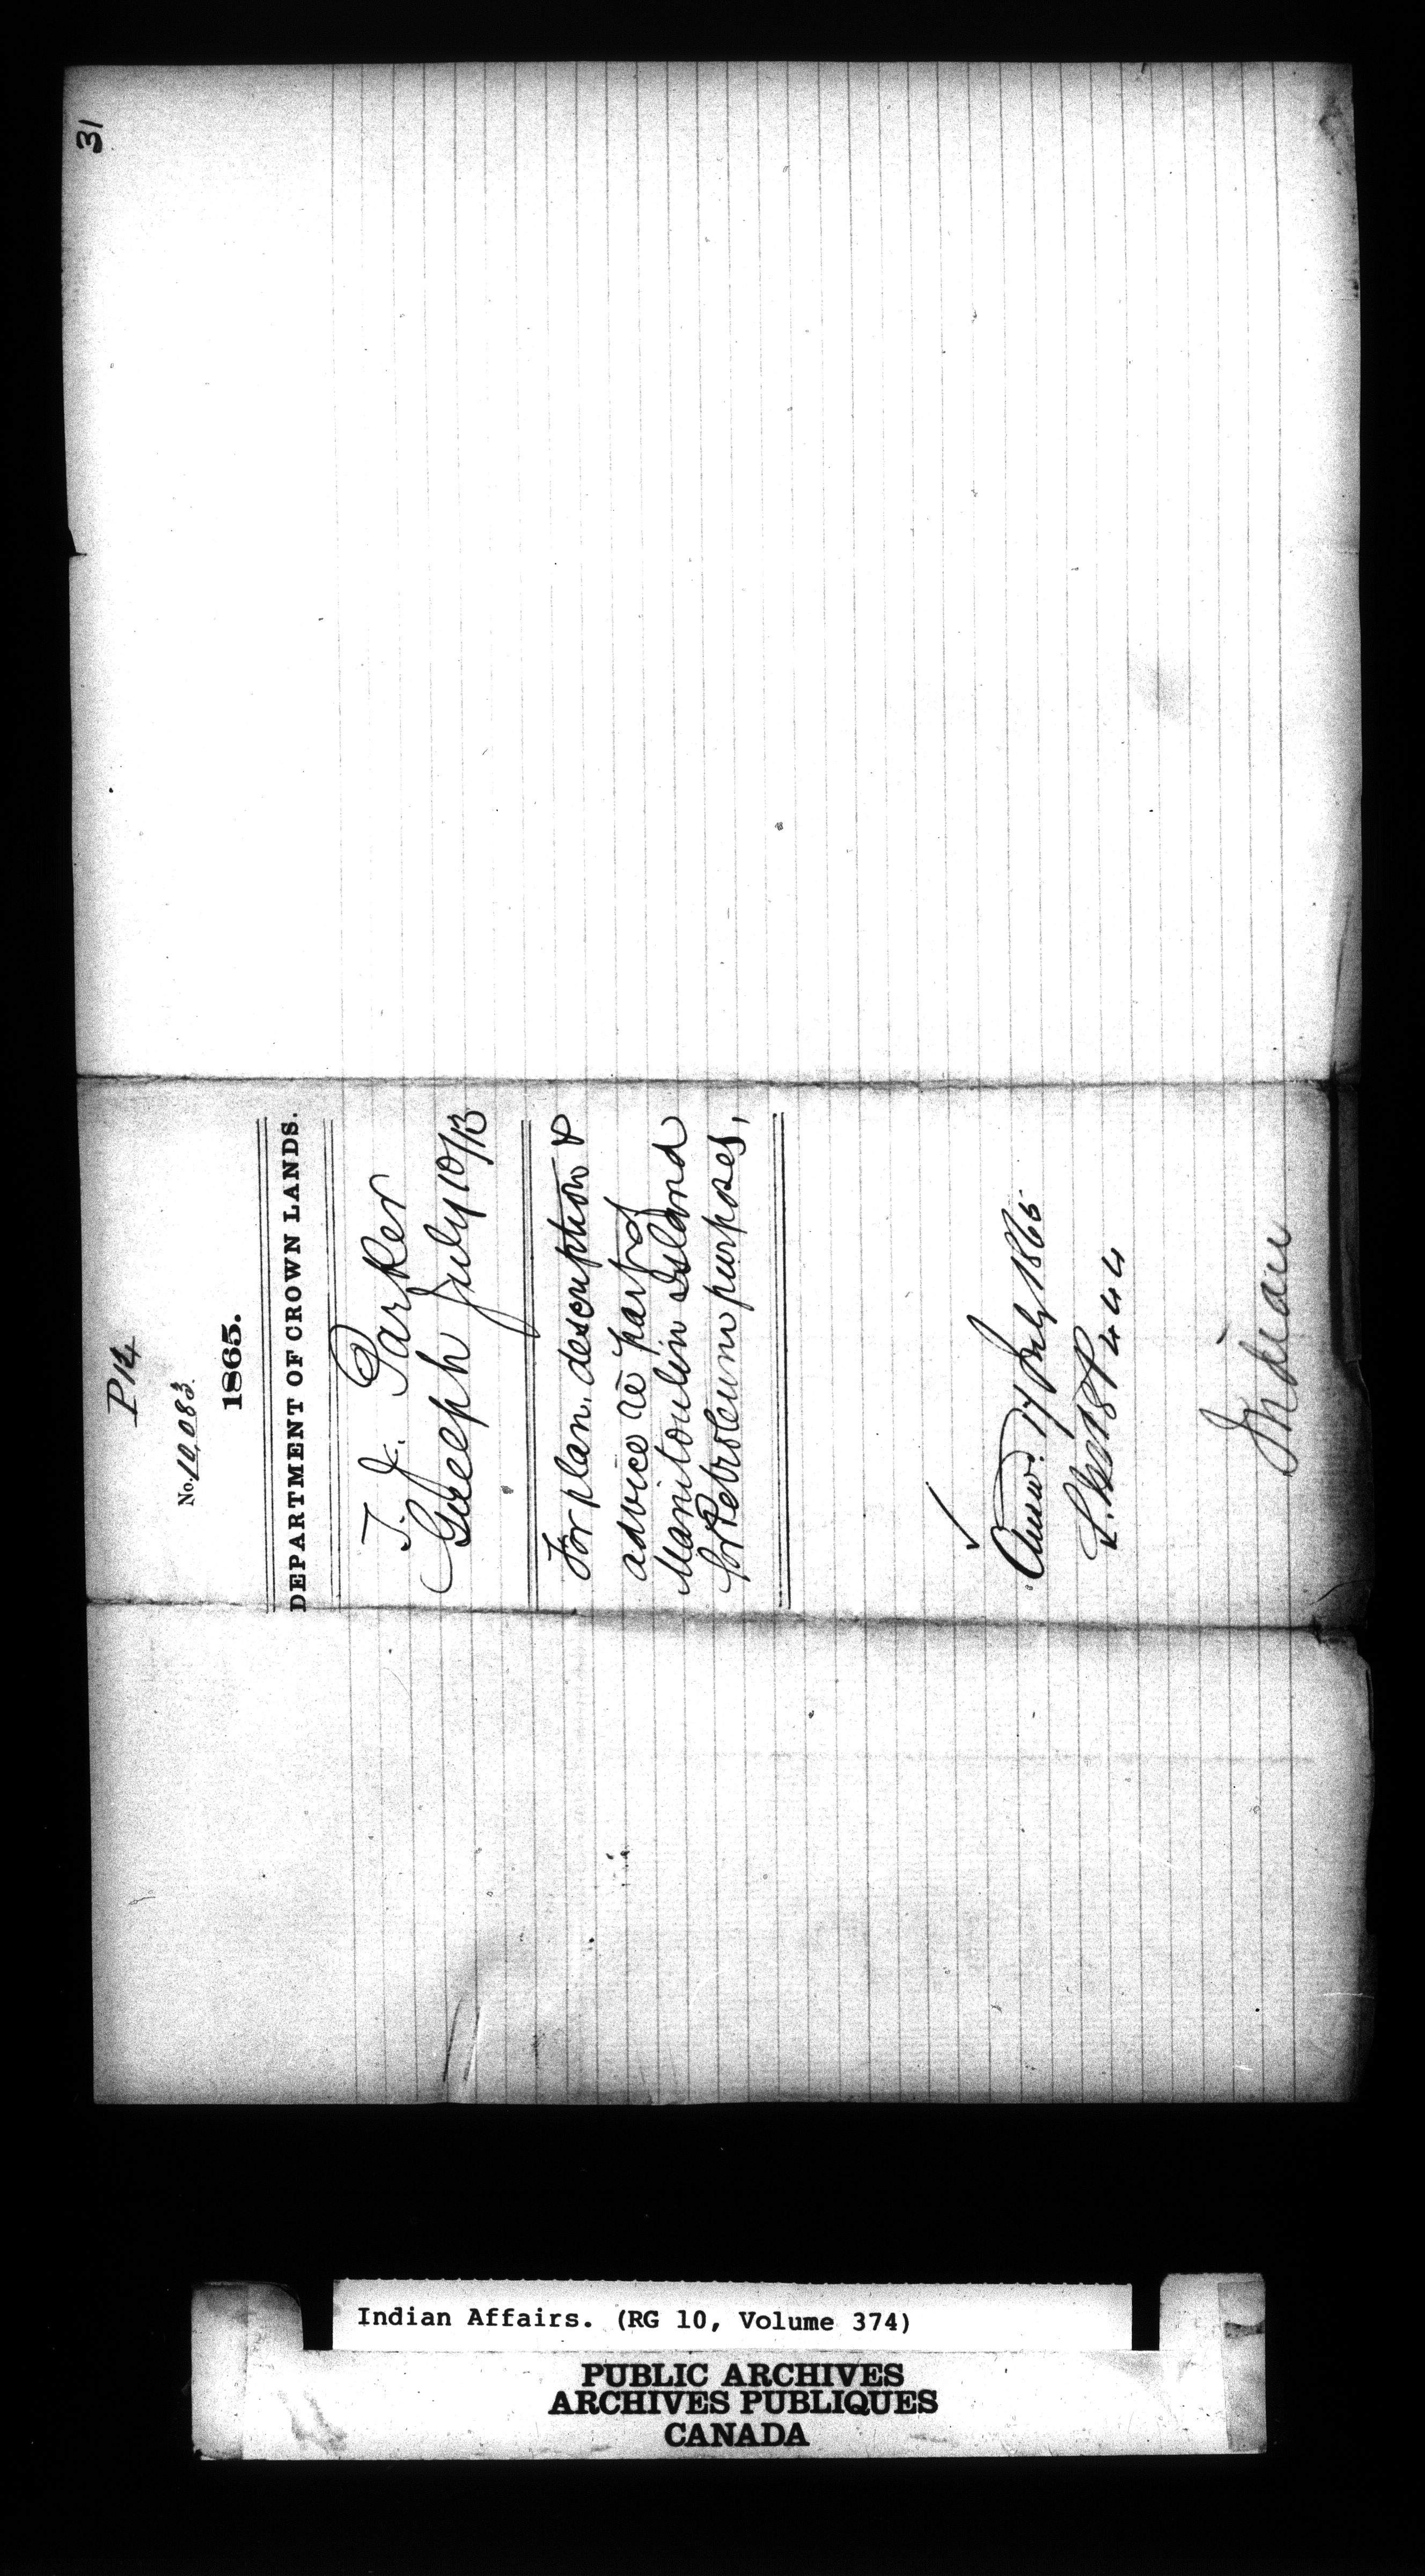 31
P 14
No. 10,083.
1865.
DEPARTMENT OF CROWN LANDS.
T. J. Parker
Guelph July 10/13
For plan, description &
advice re part of
Manitoulin Island
for Petroleum purposes,
Answd. 17 July 1865
444
Indian
Indian Affairs. (RG 10, Volume 374)
PUBLIC ARCHIVES
ARCHIVES PUBLIQUES
CANADA